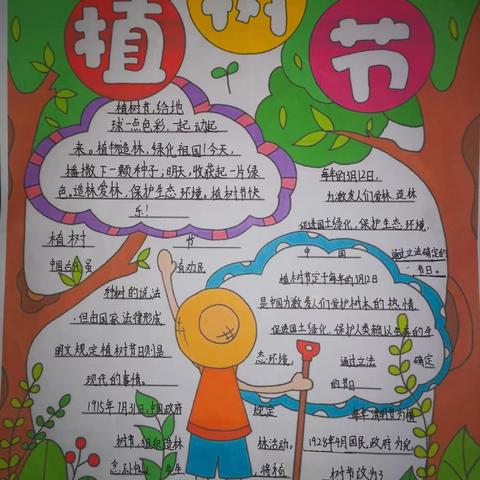 植树节
植树节,给地
球一点色彩,一起动起
来。植物造林,绿化祖国!今天,
播撒下一颗种子;明天,收获起一片绿
色。造林爱林,保护生态环境。植树节快
乐!
每年的3月12日,
为激发人们爱林、造林
促进国土绿化,保护生态环境.
植树 节 中国 通过立法确定的
节日。
中国古代 清
种树的说法
.但由国家法律形成
明文规定植树节日则是
现代的事情。
植树节定于每年的3月12日
是中国为激发人们爱护树木的热情,
促进国土绿化,保护人类赖以生存的生
态环境, 通过立法 确定
的节日
1915年7月31日,中国政府 规定 每年清明节为植
树节.组织造林 林活动。1928年4月国民政府为纪
念孙中山先生 将植 树节改为3